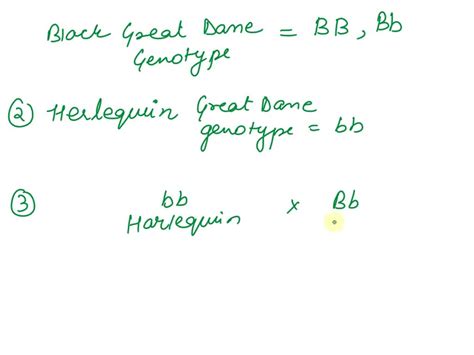 Black Great Dane = BB, Bb
Genotype
② Herlequin Great Dane
genotype = bb
③ bb × Bb
Harlequin